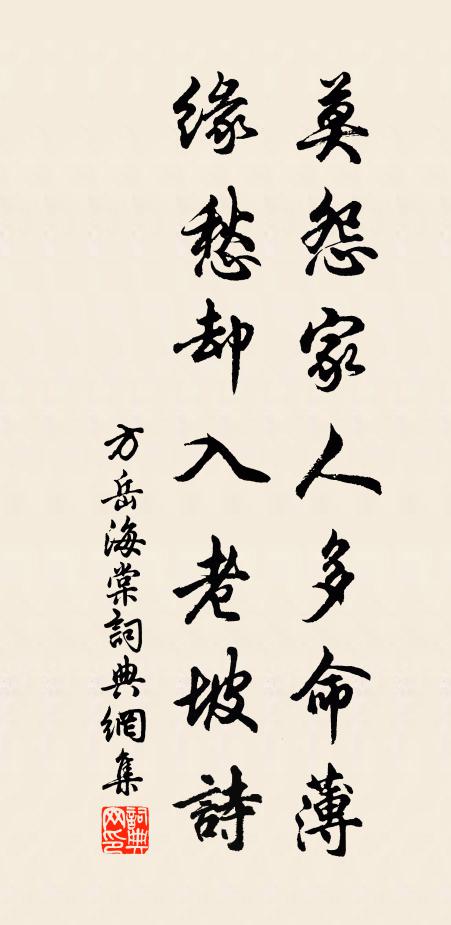 莫怨家人多命薄
緣愁却入老坡詩
方岳海棠詞典網集
詞典网印